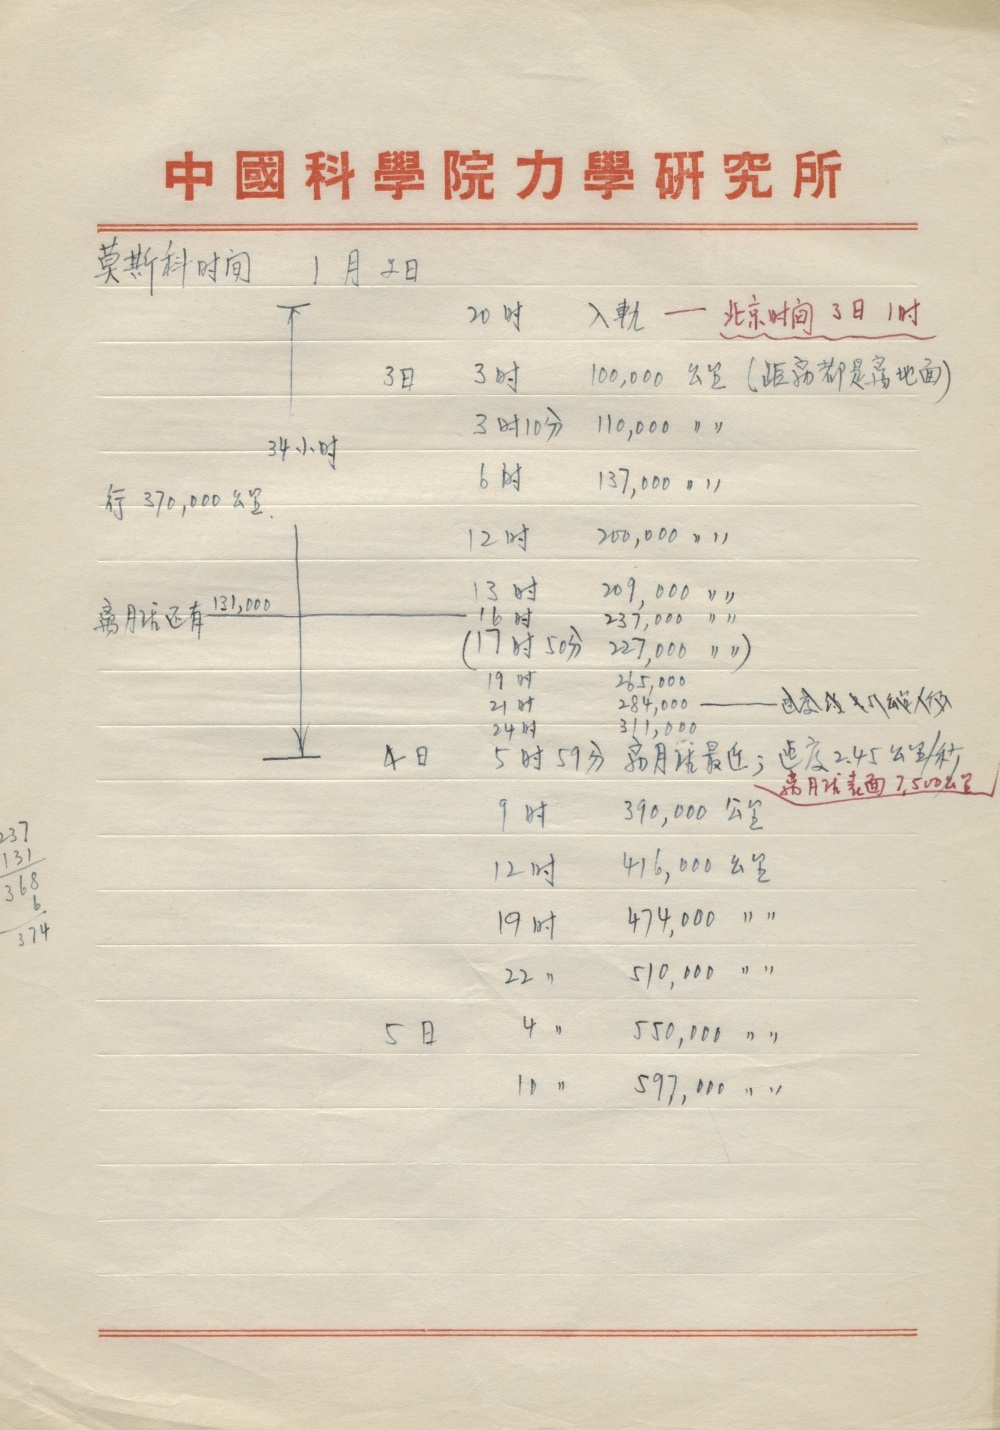 中國科學院力學研究所
莫斯科时间 1月2日
20时 入軌 — 北京时间 3日1时
3日 3时 100,000 公里 (距离都是离地面)
3时10分 110,000 〃〃
34小时
6时 137,000 〃〃
行 370,000 公里.
12时 200,000 〃〃
13时 209,000 〃〃
离月球还有 131,000 16时 237,000 〃〃
(17时50分 227,000 〃〃)
19时 265,000
21时 284,000
24时 311,000
4日 5时59分 离月球最近; 速度 2.45 公里/秒
离月球表面 7,500公里
9时 390,000 公里
237
131
368
6
374
12时 416,000 公里
19时 474,000 〃〃
22〃 510,000 〃〃
5日 4〃 550,000 〃〃
10〃 597,000 〃〃